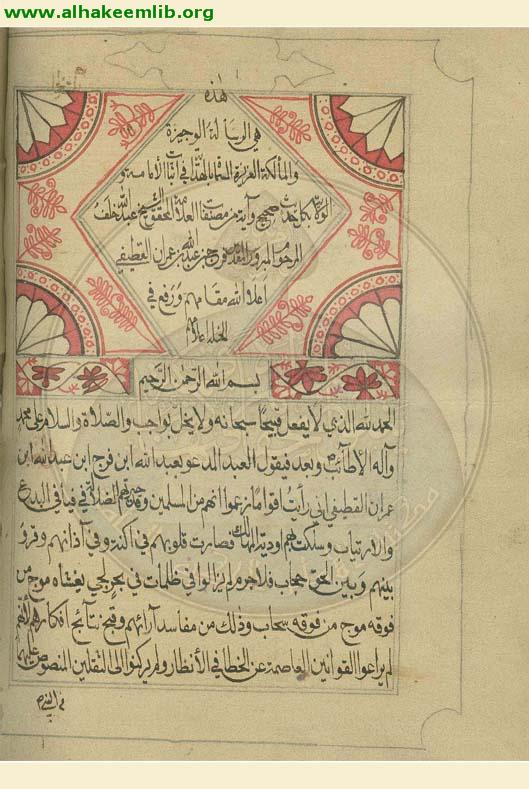 www.alhakeemlib.org
هذه
هي الرسالة الوجيزة
والمألكة العزيزة المسماة في اثبات الامامة و
الولاية بكل حديث صحيح وآية من مصنفات العلامة المحقق الشيخ عبد الله خلف
المرحوم المبرور فرج بن عبد الله بن عمران القطيفي
اعلا الله مقامهم ورفع في
الخلد اعلامهم
بسم الله الرحمن الرحيم
الحمد لله الذي لا يفعل قبيحا سبحانه ولا يخل بواجب والصلاة والسلام على محمد
وآله الأطائب وبعد فيقول العبد المدعو بعبد الله ابن فرج ابن عبد الله ابن
عمران القطيفي اني رأيت اقواما زعموا انهم من المسلمين وقد الضلال في فيافي البدع
والارتياب وسلكت بهم اودية المهالك فصارت قلوبهم في اكنة وفي آذانهم وقر و
بينهم وبين الحق حجاب فلا جرم لم يزالوا في ظلمات في بحر لجي يغشاه موج من
فوقه موج من فوقه سحاب وذلك من مفاسد آرائهم وقبح نتائج افكارهم اذ
لم يراعوا القوانين العاصمة عن الخطا في الأنظار ولم يركنوا الى الثقلين المنصوص عليهما